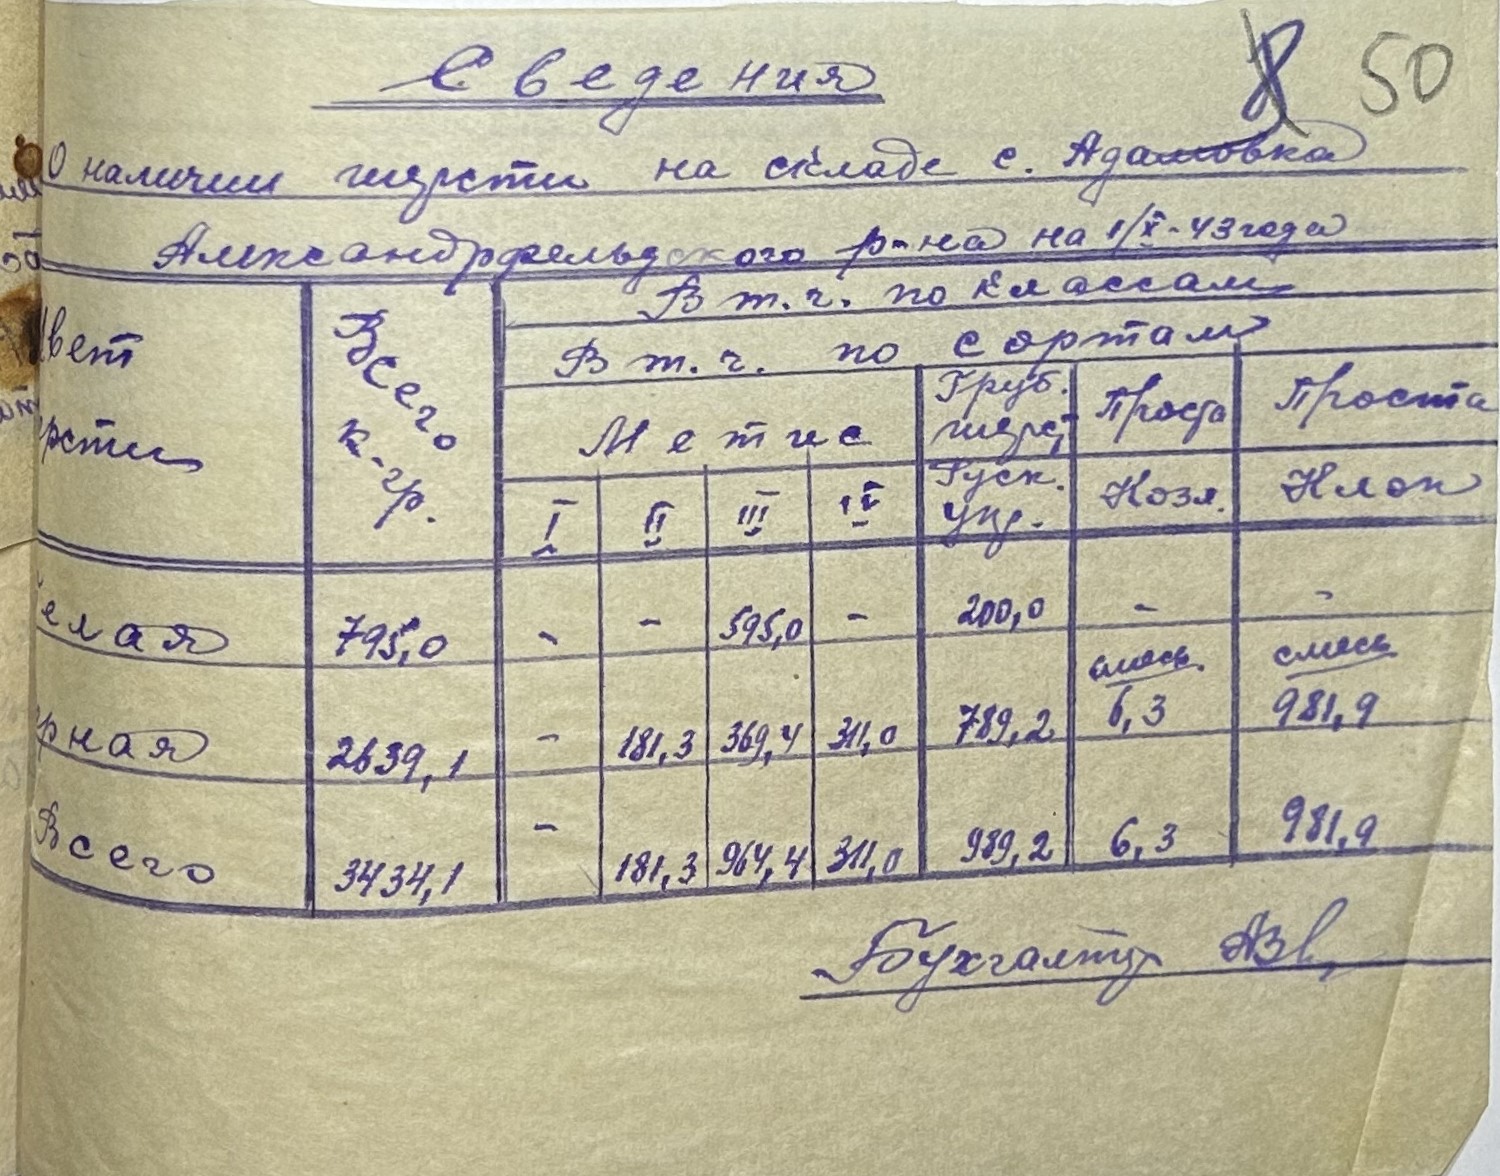 Сведения
50
О наличии шерсти на складе с. Адамовка
Александрфельдского р-на на 1/X-43 года
Цвет шерсти
Всего к-гр.
В т.ч. по классам
В т.ч. по сортам
Метис
Груб. шерст
Проста
Проста
I II III IV
Козл.
Клок
Белая 795,0 - - 595,0 - 200,0 - -
смесь смесь
Черная 2639,1 - 181,3 369,4 311,0 789,2 6,3 981,9
Всего 3434,1 - 181,3 964,4 311,0 989,2 6,3 981,9
Бухгалтер